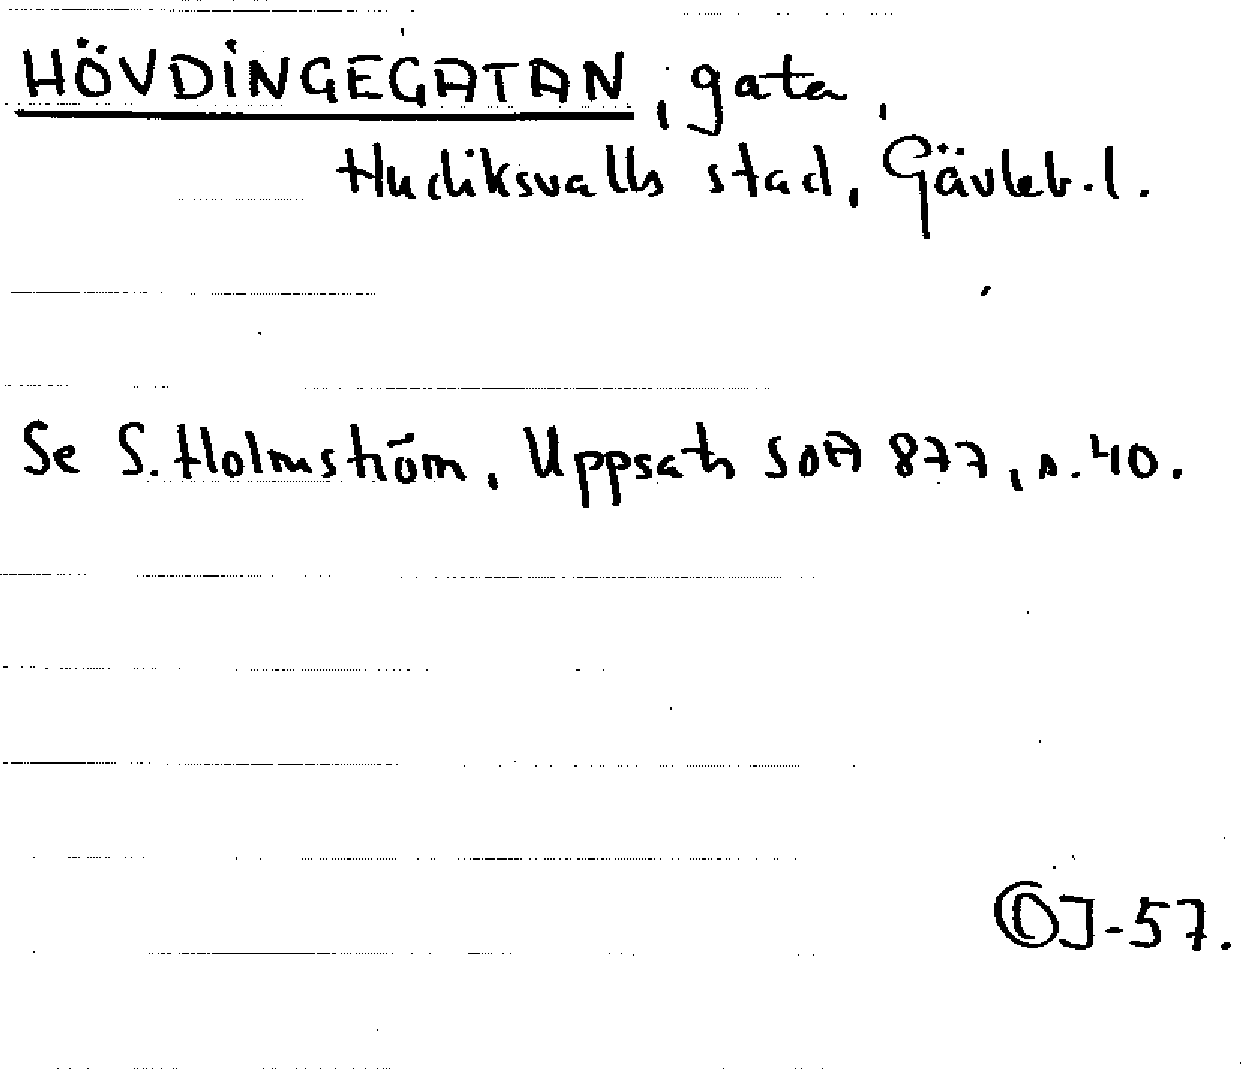 HÖVDINGEGATAN, gata,
Hudiksvalls stad, Gävleb.l.
Se S. Holmström, Uppsats SOA 877, s. 40.
OJ-57.